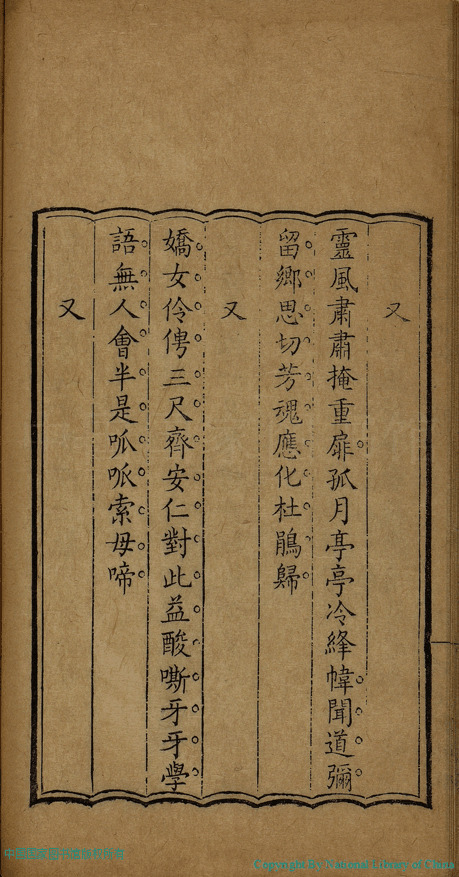 又
靈風肅肅掩重扉孤月亭亭冷絳幃聞道彌
留鄉思切芳魂應化杜鵑歸
又
嬌女伶俜三尺齊安仁對此益酸嘶牙牙學
語無人會半是呱呱索母啼
又
Copyright By National Library of China